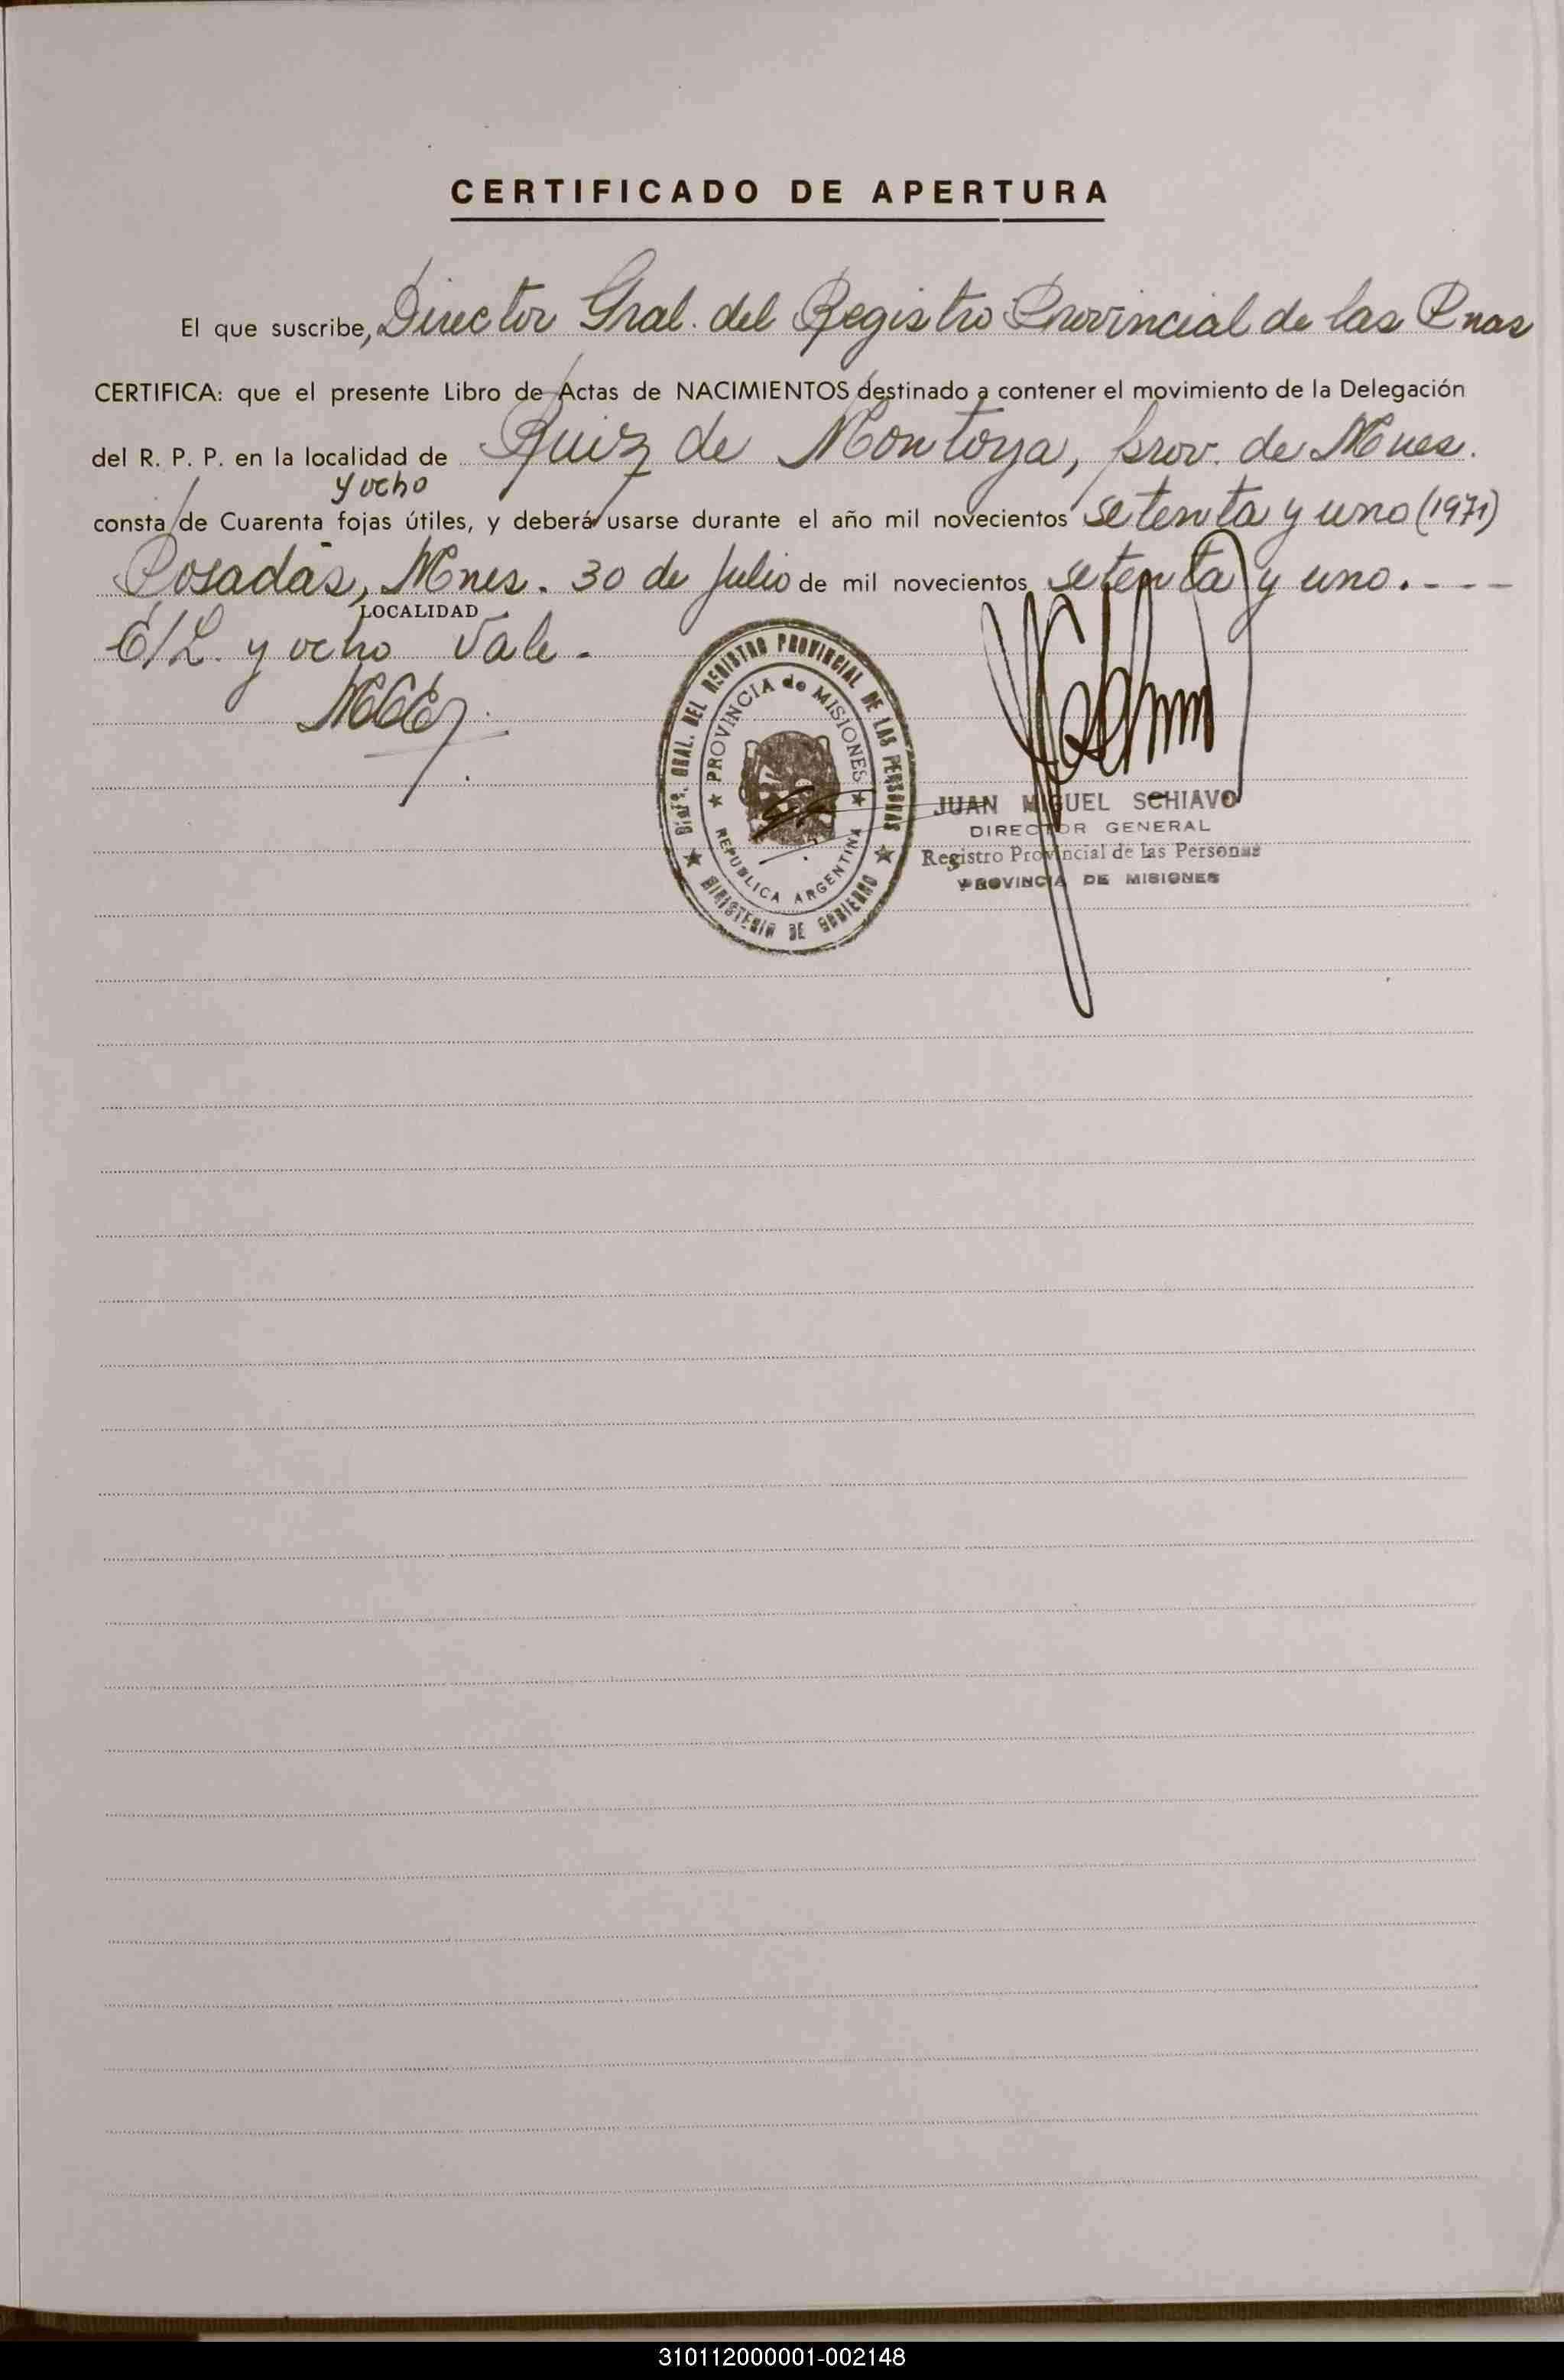 CERTIFICADO DE APERTURA
El que suscribe, Director Gral. del Registro Provincial de las Pnas
CERTIFICA: que el presente Libro de Actas de NACIMIENTOS destinado a contener el movimiento de la Delegación
del R. P. P. en la localidad de Ruiz de Montoya, prov. de Mnes.
y ocho
consta de Cuarenta fojas útiles, y deberá usarse durante el año mil novecientos setenta y uno (1971)
Posadas, Mnes. 30 de Julio de mil novecientos setenta y uno. - - -
LOCALIDAD
E/L. y ocho Vale -
DIREC. GRAL. DEL REGISTRO PROVINCIAL DE LAS PERSONAS
PROVINCIA de MISIONES
REPUBLICA ARGENTINA
MINISTERIO DE GOBIERNO
JUAN MIGUEL SCHIAVO
DIRECTOR GENERAL
Registro Provincial de las Personas
PROVINCIA DE MISIONES
310112000001-002148